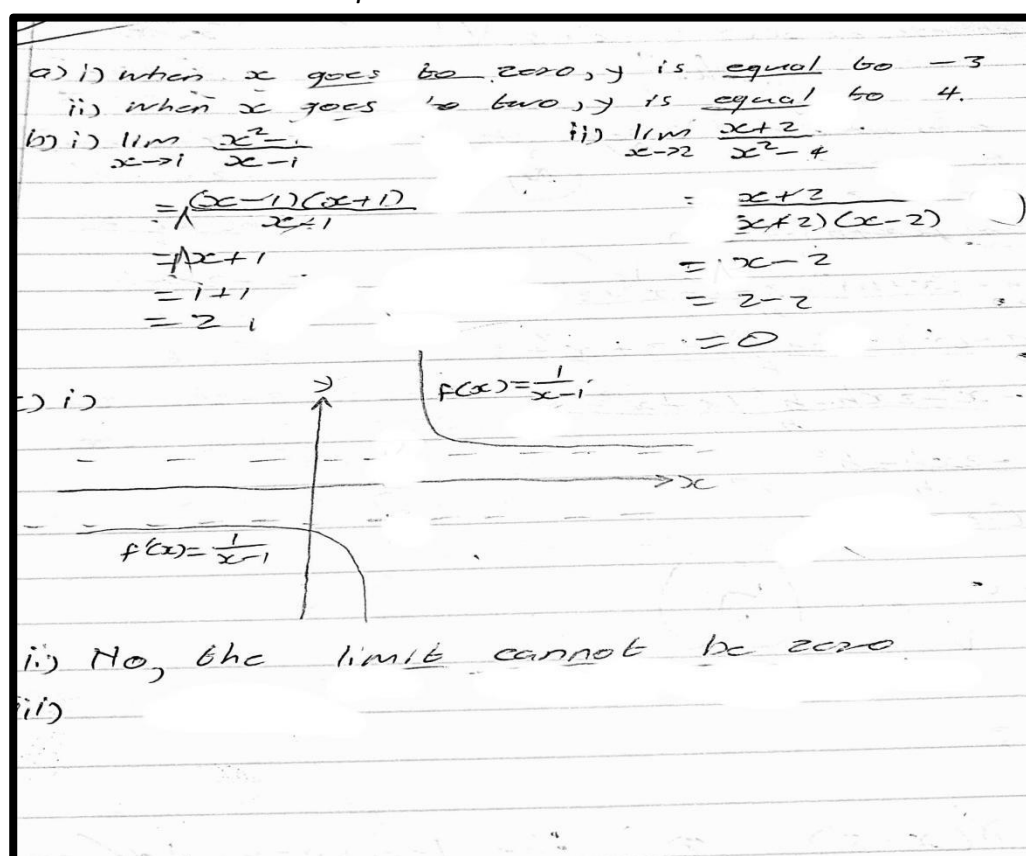 a) i) when x goes to zero, y is equal to -3
ii) when x goes to two, y is equal to 4.
b) i) lim x→1 x² - 1 / x - 1
= (x-1)(x+1) / x-1
= x+1
= 1+1
= 2
ii) lim x→2 x+2 / x² - 4
= x+2 / (x+2)(x-2)
= x-2
= 2-2
= 0
c) i)
y
f(x) = 1 / x-1
x
f(x) = 1 / x-1
ii) No, the limit cannot be zero
iii)